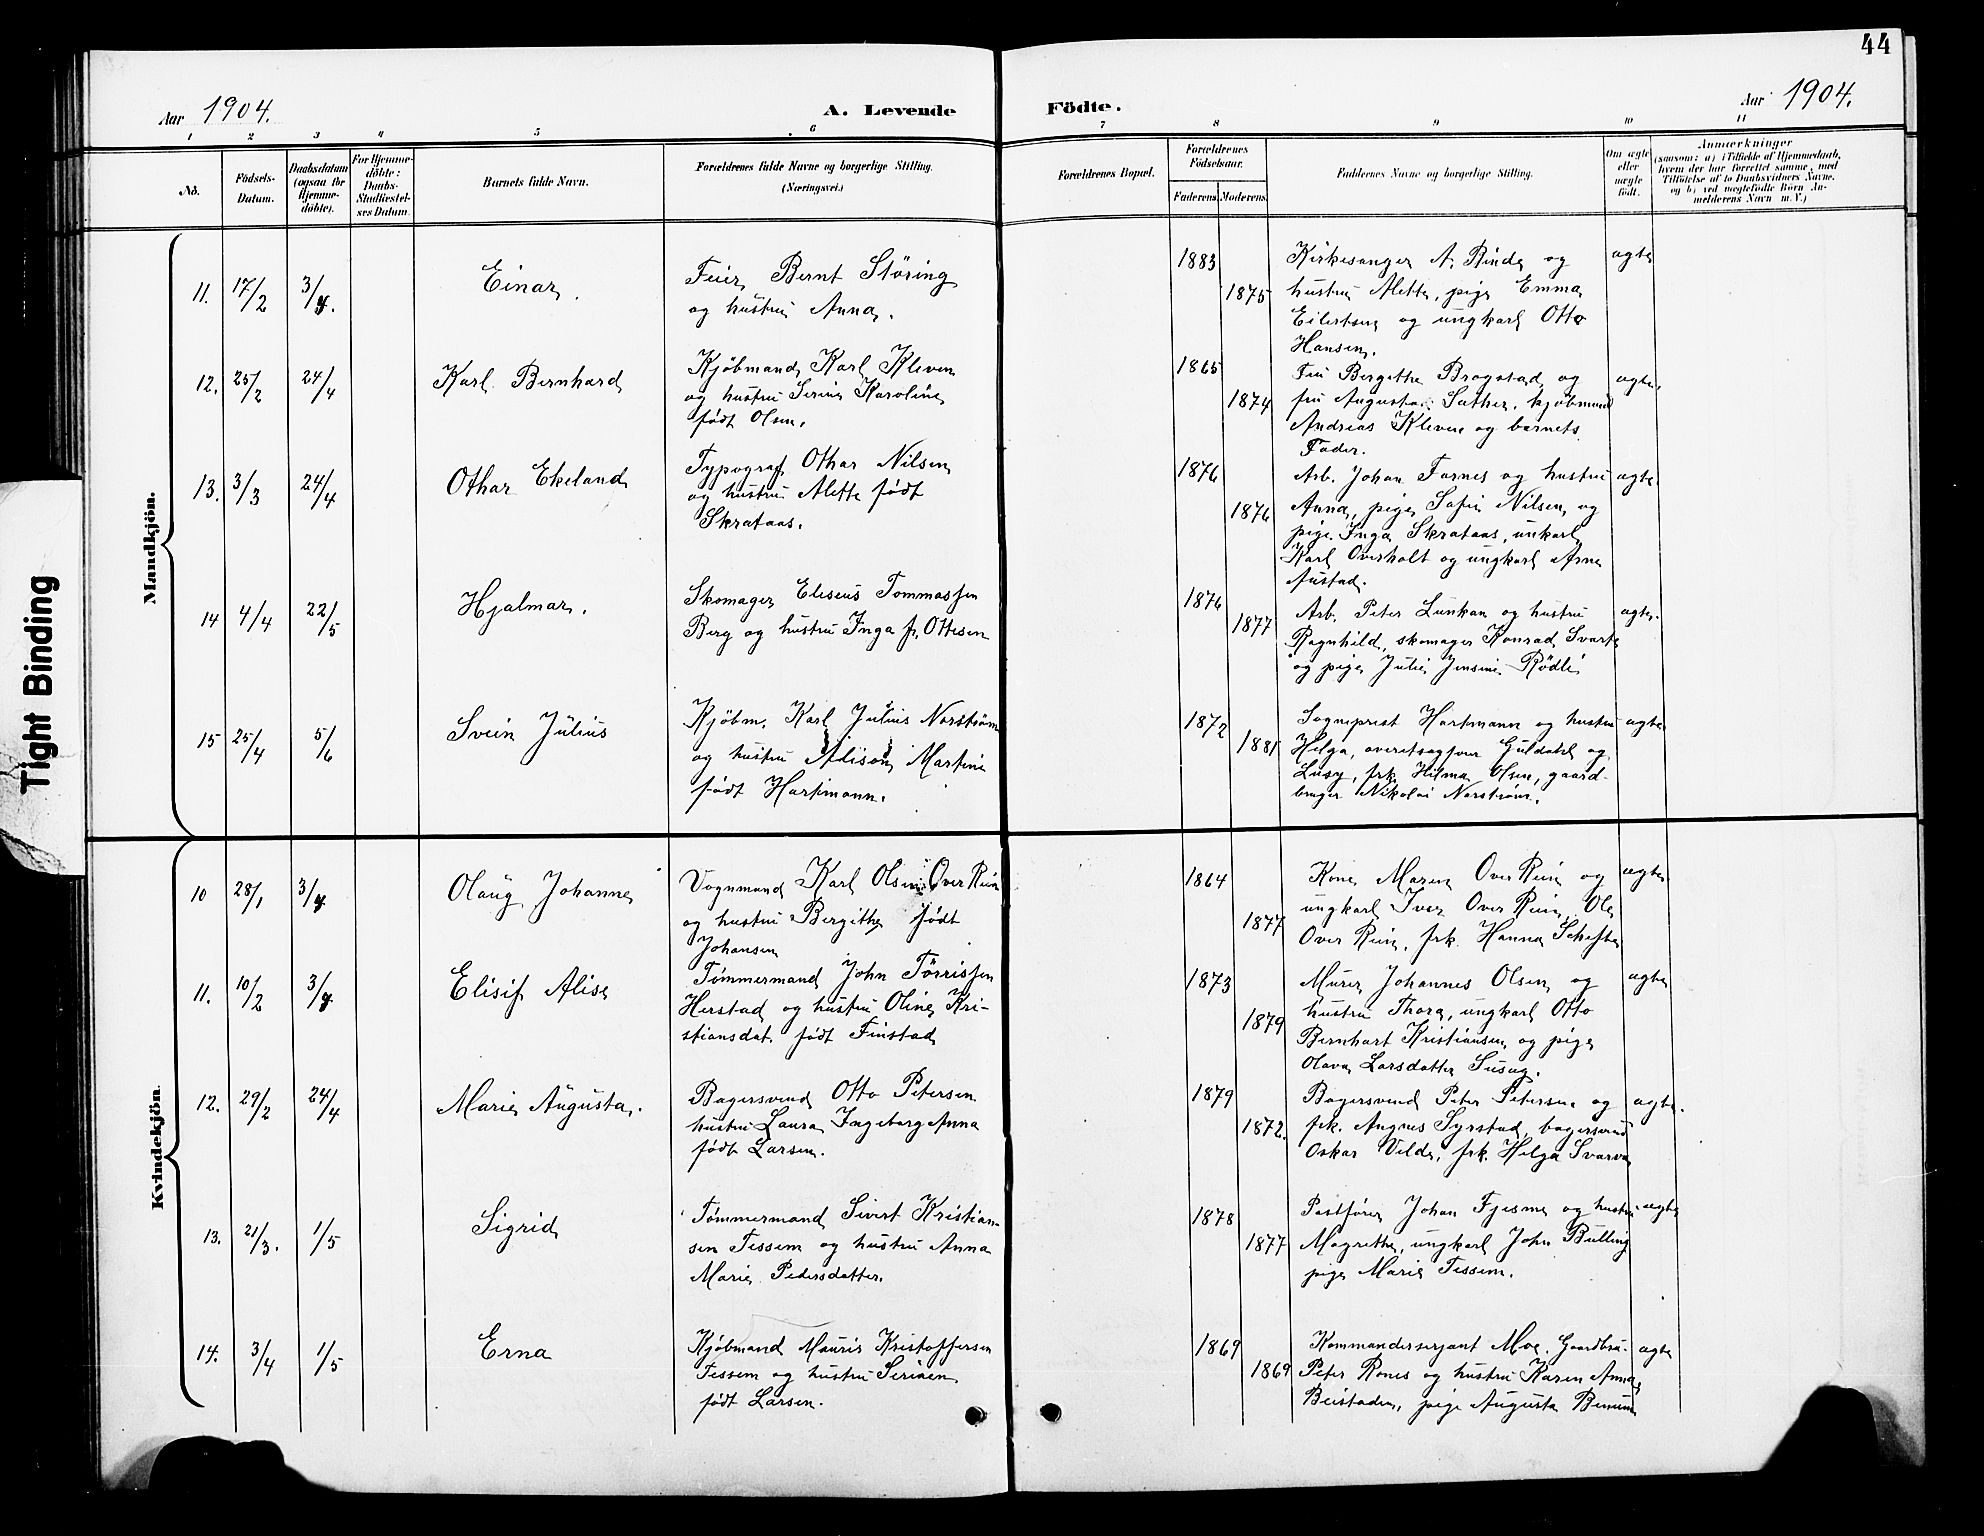 44
Aar 1904.
A. Levende Födte.
Aar 1904.
1 2 3 4 5 6 7 8 9 10 11
No.
Födsels-
Datum.
Daabsdatum
(ogsaa for
Hjemme-
döbte).
For Hjemme-
döbte:
Daabs-
Stadfæstel-
ses Datum.
Barnets fulde Navn.
Forældrenes fulde Navne og borgerlige Stilling.
(Næringsvei.)
Forældrenes Bopæl.
Forældrenes
Födselsaar.
Faderens. Moderens.
Faddernes Navne og borgerlige Stilling.
Om ægte
eller
uægte
födt.
Anmærkninger
(saasom: a) i Tilfælde af Hjemmedaab,
hvem der har forrettet samme, med
Tilföielse af to Daabsvidners Navne.
og b) ved uægtefödte Börn An-
melderens Navn m. V.)
Mandkjön.
11. 17/2 3/4. Einar.
Feier Bernt Störing
og hustru Anna.
1883
1875
Kirkesanger A. Rinde og
hustru Alette, pige Emma
Eilertsen og ungkarl Otto
Hansen.
ægte
12. 25/2 24/4 Karl Bernhard
Kjöbmand Karl Kleven
og hustru Serine Karoline
födt Olsen.
1865
1874
Fru Bergithe Brogstad og
fru Augusta Sather, kjöbmand
Andreas Kleven og barnets
Fader.
ægte.
13. 3/3 24/4 Othar Ekeland
Typograf Othar Nilsen
og hustru Alette födt
Skrataas.
1876
1876
Arb. Johan Farnes og hustru
Anna, pige Sofie Nilsen og
pige Inga Skrataas, unkarl
Karl Overholt og ungkarl Arne
Austad.
ægte.
14 4/4 22/5 Hjalmar.
Skomager Eliseus Tommassen
Berg og hustru Inga f. Ottesen
1876
1877
Arb. Peter Lunkan og hustru
Ragnhild, skomager Konrad Svarte
og pige Julie Jensine Rödli
ægte.
15 25/4 5/6 Svein Julius
Kjöbm. Karl Julius Norström
og hustru Martine
födt Hartmann.
1872
1881
Sogneprest Hartmann og hustru
Helga, Guldahl og
Lusy, frk. Hilma Olsen, gaard-
bruger Nikolai Norström.
ægte
Kvindekjön.
10 28/1 3/4 Olaug Johanne
Vognmand Karl Olsen Over Rein
og hustru Bergithe födt
Johansen
1864
1877
Kone Maren Over Rein og
ungkarl Iver Over Rein, Ole
Over Rein, frk. Hanna Schefte
ægte
11. 10/2 3/4 Elisif Alise
Tömmermand John Törrissen
Herstad og hustru Oline Kri-
stiansdat födt Finstad
1873
1879
Murer Johannes Olsen og
hustru Thora, ungkarl Otto
Bernhart Kristiansen og pige
Olava Larsdatter Susag.
ægte
12. 29/2 24/4 Marie Augusta.
Bagersvend Otto Petersen
hustru Laura Ingeborg Anna
födt Larsen.
1879
1872.
Bagersvend Peter Petersen og
frk. Angnes Syrstad, bagersvend
Oskar Velde, frk. Helga Svarva
ægte.
13. 21/3. 1/5 Sigrid
Tömmermand Sivert Kristian-
sen Tessem og hustru Anna
Marie Petersdatter.
1878
1877
Postförer Johan Fjesme og hustru
Magrethe, ungkarl John Bulling
pige Marie Tessem.
ægte
14. 3/4 1/5 Erna
Kjöbmand Mauris Kristoffersen
Tessem og hustru Serinen
födt Larsen.
1869
1869
Kommandersersjant Moe. Gaardbru-
Peter Rones og hustru Karen Anna
Beistaden, pige Augusta
ægte
Tight Binding